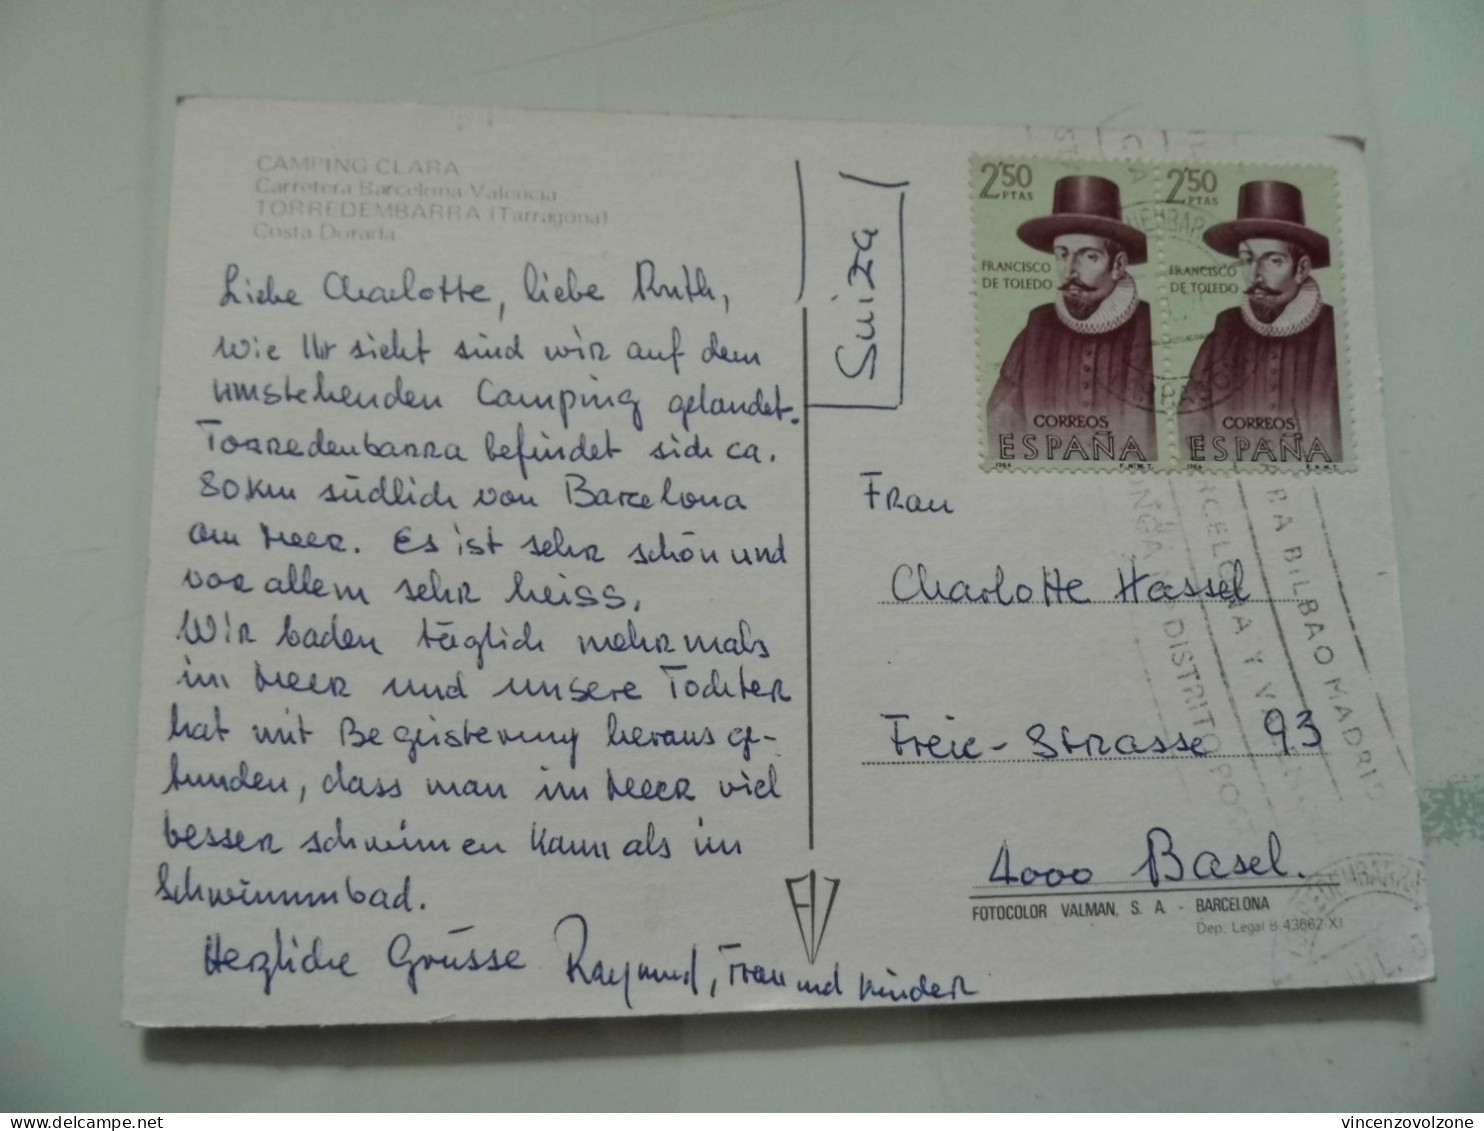 CAMPING CLARA
Carretera Barcelona-Valencia
TORREDEMBARRA (Tarragona)
Costa Dorada
Liebe Charlotte, liebe Ruth,
wie Ihr sieht sind wir auf dem
umstehenden Camping gelandet.
Torredenbarra befindet sich ca.
80 km südlich von Barcelona
am Meer. Es ist sehr schön und
vor allem sehr heiss.
Wir baden täglich mehrmals
im Meer und unsere Tochter
hat mit Begeisterung heraus ge-
funden, dass man im Meer viel
besser schwimmen kann als im
Schwimmbad.
Herzliche Grüsse Raymund, Frau und Kinder
Suiza
2'50 PTAS
FRANCISCO
DE TOLEDO
CORREOS
ESPAÑA
1964 F.N.M.T.
2'50 PTAS
FRANCISCO
DE TOLEDO
CORREOS
ESPAÑA
1964 F.N.M.T.
BILBAO MADRID
BARCELONA Y
DISTRITO
Frau
Charlotte Hassel
Freie-Strasse 93
4000 Basel.
FOTOCOLOR VALMAN, S. A. - BARCELONA
Dep. Legal B. 43662-XI
vincenzovolzone